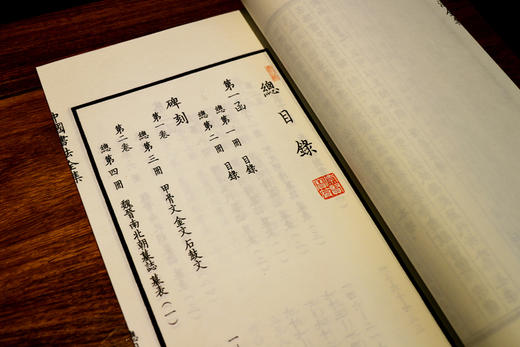 總目錄
第一函
總第一冊 目錄
總第二冊 目錄
碑刻
第一卷
總第三冊 甲骨文金文石鼓文
第二卷
總第四冊 魏晉南北朝墓誌墓表（一）
中國書法全集